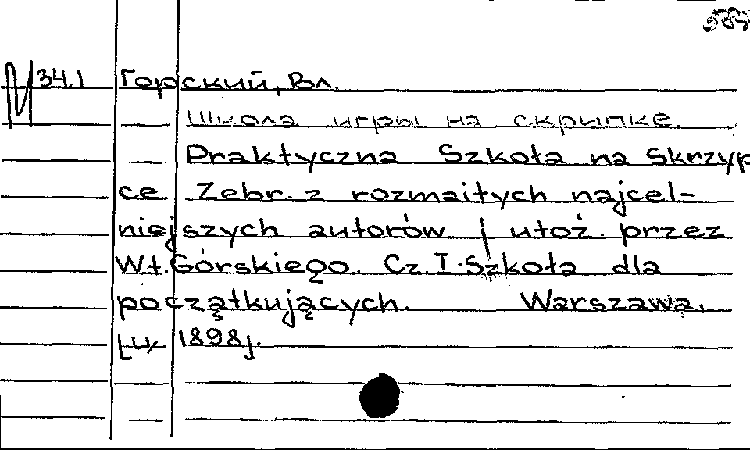 М 34.1 Горский, Вл.
Школа игры на скрипке.
Praktyczna Szkoła na Skrzyp
ce Zebr. z rozmaitych najcel-
niejszych autorów i ułoż. przez
Wł. Górskiego. Cz. I. Szkoła dla
początkujących. Warszawa,
[ц. 1898].